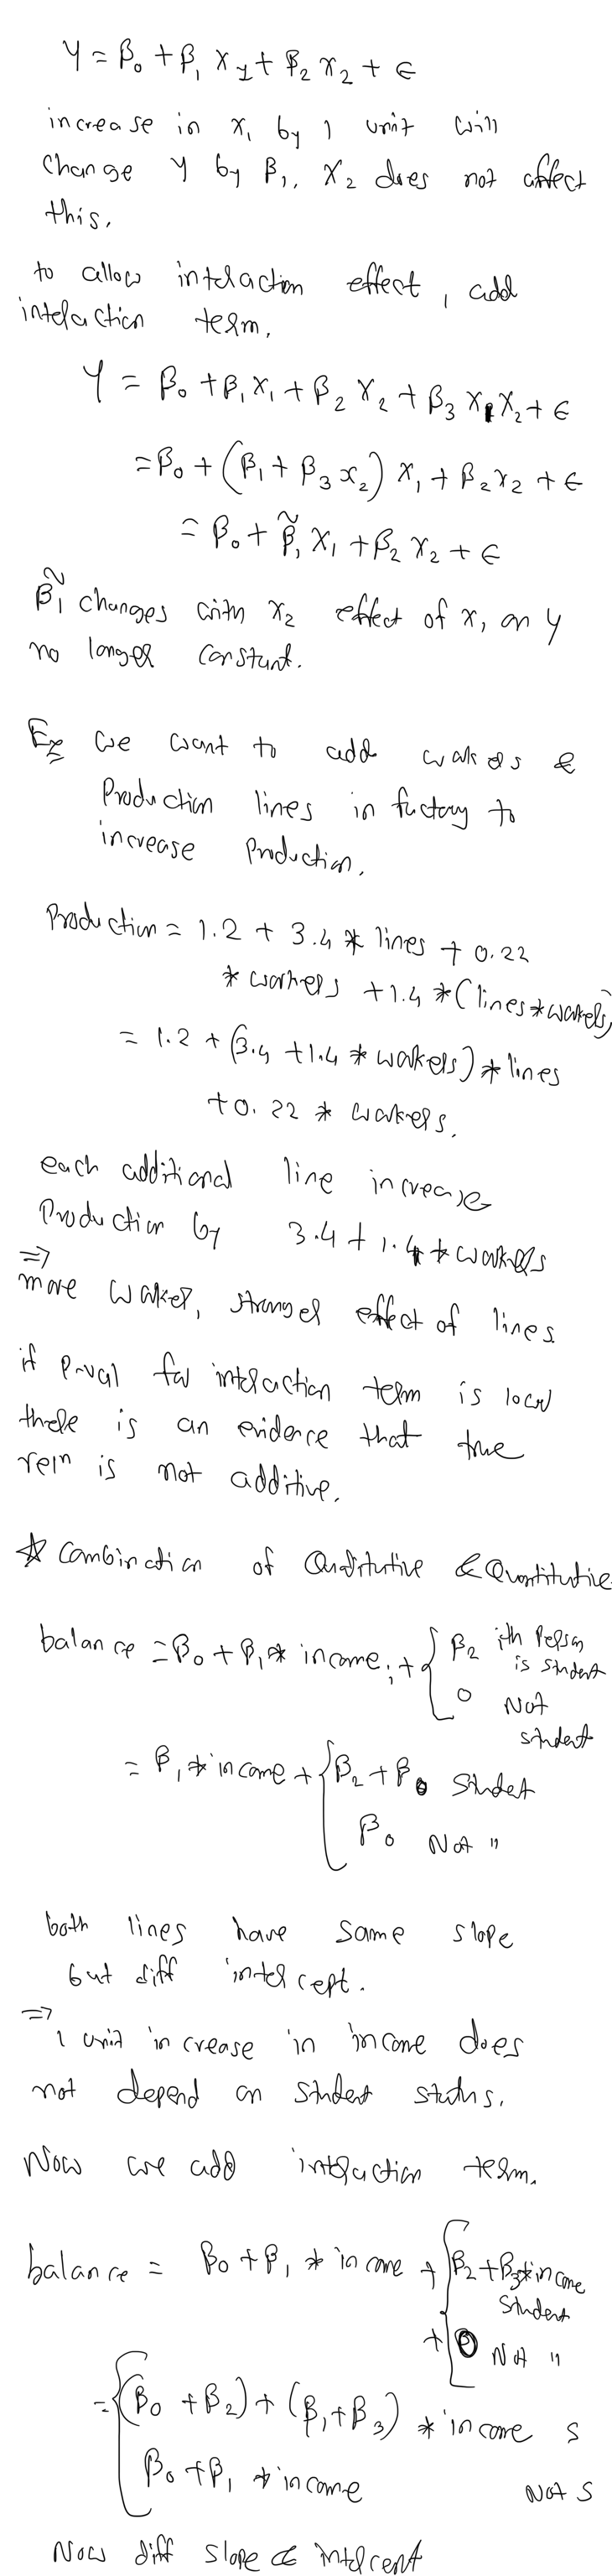 Y = β₀ + β₁ X₁ + β₂ X₂ + ϵ
increase in X₁ by 1 unit will
change Y by β₁. X₂ does not affect
this.
to allow interaction effect, add
interaction term.
Y = β₀ + β₁X₁ + β₂ X₂ + β₃ X₁X₂ + ϵ
= β₀ + (β₁ + β₃ x₂) X₁ + β₂X₂ + ϵ
= β₀ + β̃₁ X₁ + β₂ X₂ + ϵ
β̃₁ changes with X₂ effect of X₁ on Y
no longer constant.
Ex we want to add workers &
Production lines in factory to
increase Production.
Production = 1.2 + 3.4 * lines + 0.22
* workers + 1.4 * (lines * workers)
= 1.2 + (3.4 + 1.4 * workers) * lines
+ 0.22 * workers.
each additional line increase
Production by 3.4 + 1.4 * workers
⇒
more worker, stronger effect of lines
if p-val for interaction term is low
there is an evidence that true
reln is not additive.
☆ Combination of Qualitative & Quantitative
balance = β₀ + β₁ * incomeᵢ + { β₂ ith Person
is student
0 Not
student
= β₁ * income + { β₂ + β₀ Student
β₀ Not "
both lines have same slope
but diff intercept.
⇒
1 unit increase in income does
not depend on student status.
Now we add interaction term.
balance = β₀ + β₁ * income + { β₂ + β₃ * income
Student
+ 0 Not "
= { (β₀ + β₂) + (β₁ + β₃) * income S
β₀ + β₁ * income Not S
Now diff slope & intercept